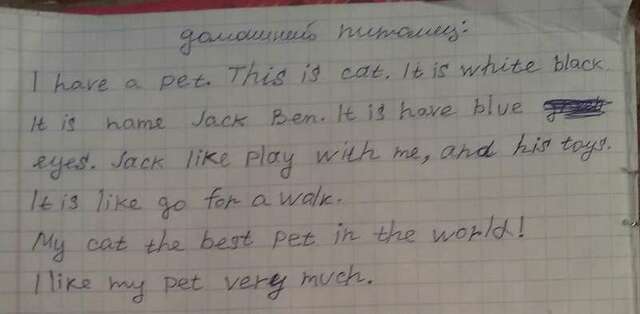 домашний питомец:
I have a pet. This is cat. It is white black
It is name Jack Ben. It is have blue
eyes. Jack like play with me, and his toys.
It is like go for a walk.
My cat the best pet in the world!
I like my pet very much.